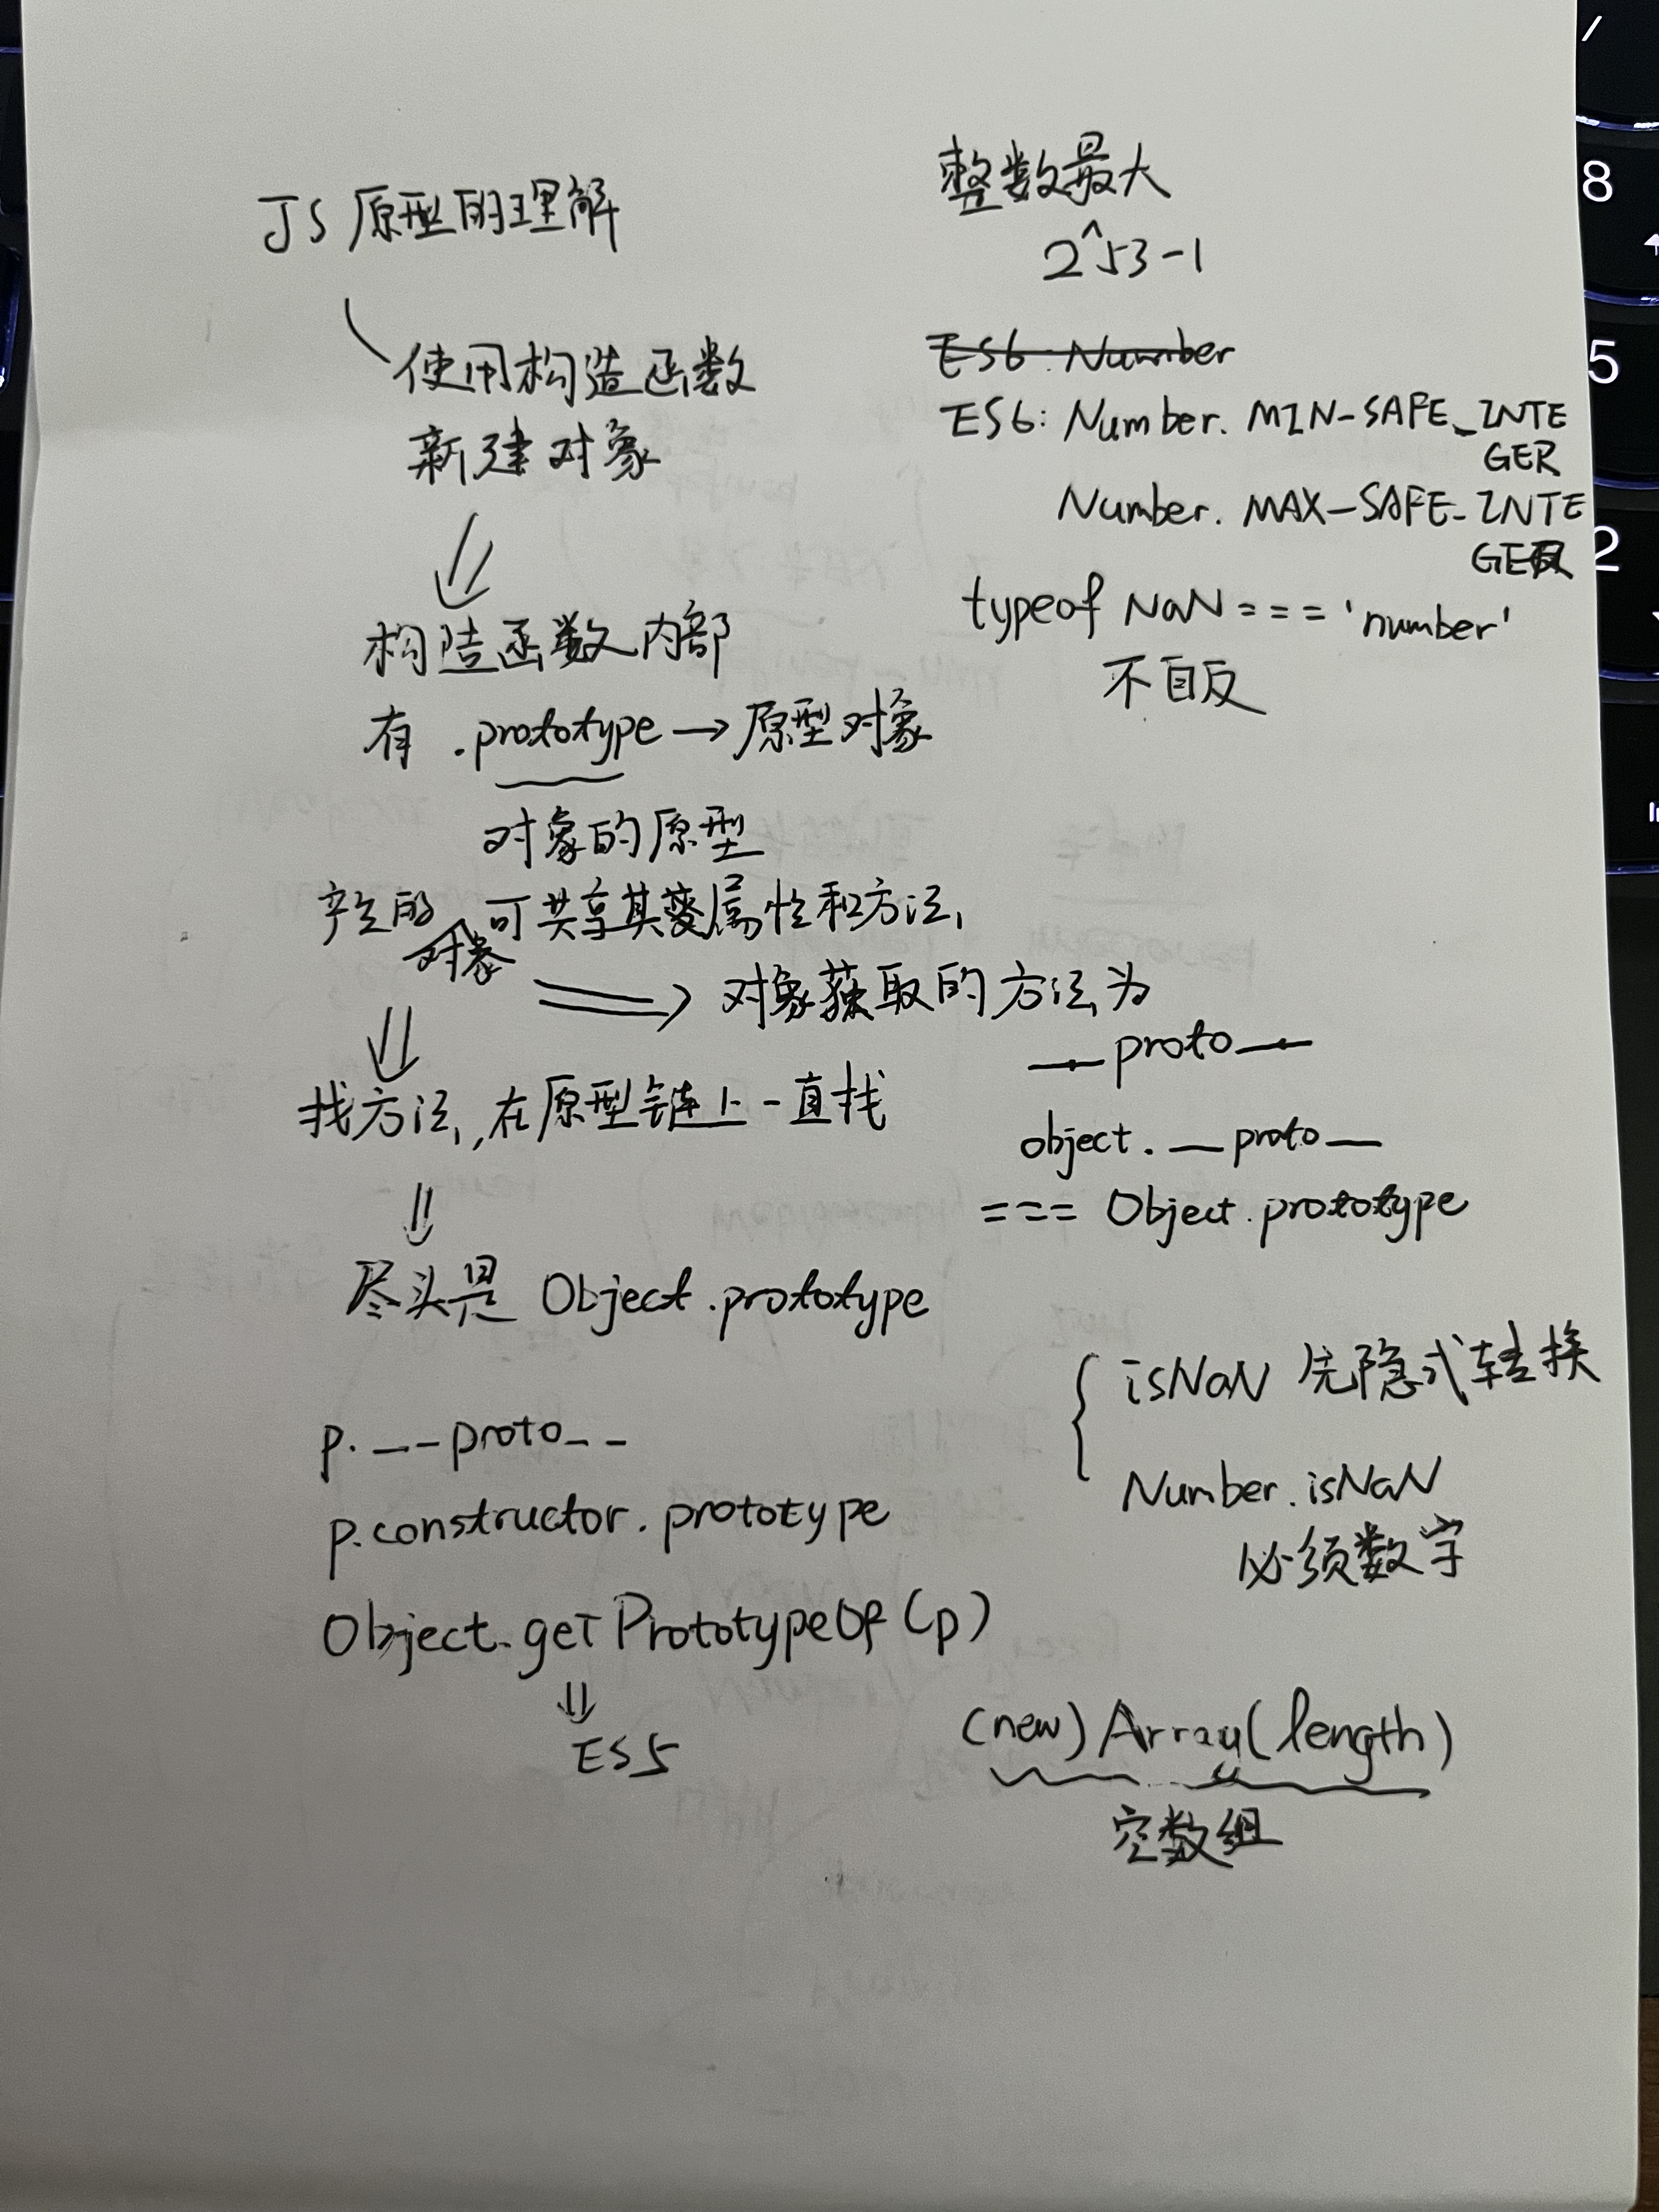 JS 原型的理解
使用构造函数
新建对象
构造函数内部
有 .prototype → 原型对象
对象的原型
产生的 可共享其属性和方法,
对象
⇒ 对象获取的方法为
__proto__
object.__proto__
=== Object.prototype
找方法,在原型链上一直找
尽头是 Object.prototype
p.__proto__
p.constructor.prototype
Object.getPrototypeOf(p)
ES5
整数最大
2^53-1
ES6: Number
ES6: Number. MIN-SAFE_INTE
GER
Number. MAX-SAFE-INTE
GER
typeof NaN === 'number'
不自反
isNaN 先隐式转换
Number.isNaN
必须数字
(new) Array(length)
空数组
/
8
5
2